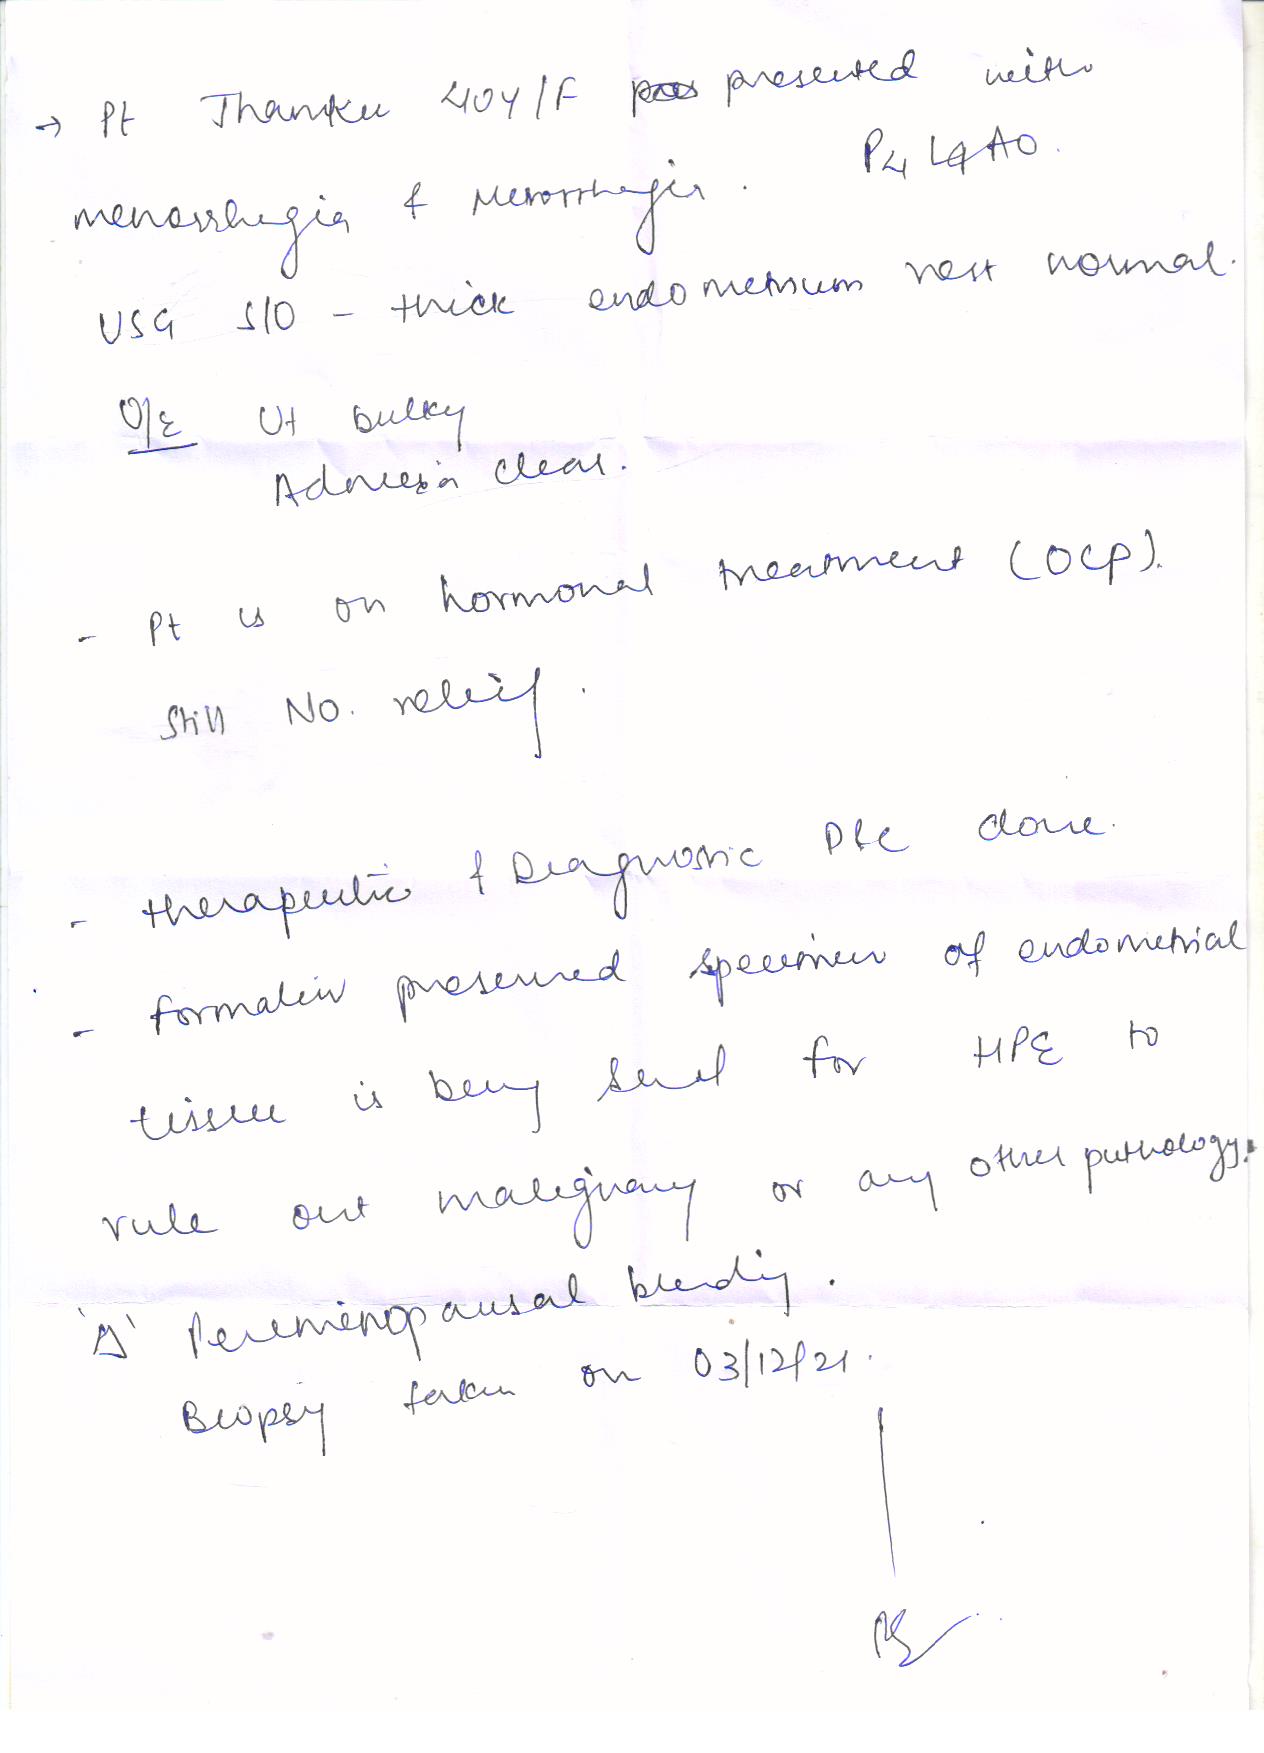 → Pt Thanku 40Y/F presented with
P4 L4 A0.
menorrhagia & Metrorrhagia.
USG S/O - thick endometrium rest normal.
O/E Ut bulky
Adnexa clear.
- Pt is on hormonal treatment (OCP).
Still NO. relief.
- therapeutic & Diagnostic D&C done.
- formalin preserved specimen of endometrial
tissue is being sent for HPE to
rule out malignancy or any other pathology.
'Δ' Perimenopausal bleeding.
Biopsy taken on 03/12/21.